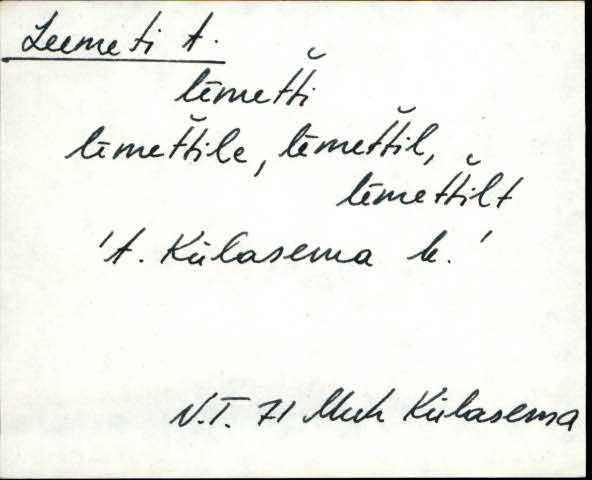 Leemeti t.
lēmet̆ti
lēmet̆tile, lēmet̆til,
lēmet̆tilt
't. Külasema k.'
N.T. 71 Muh Külasema